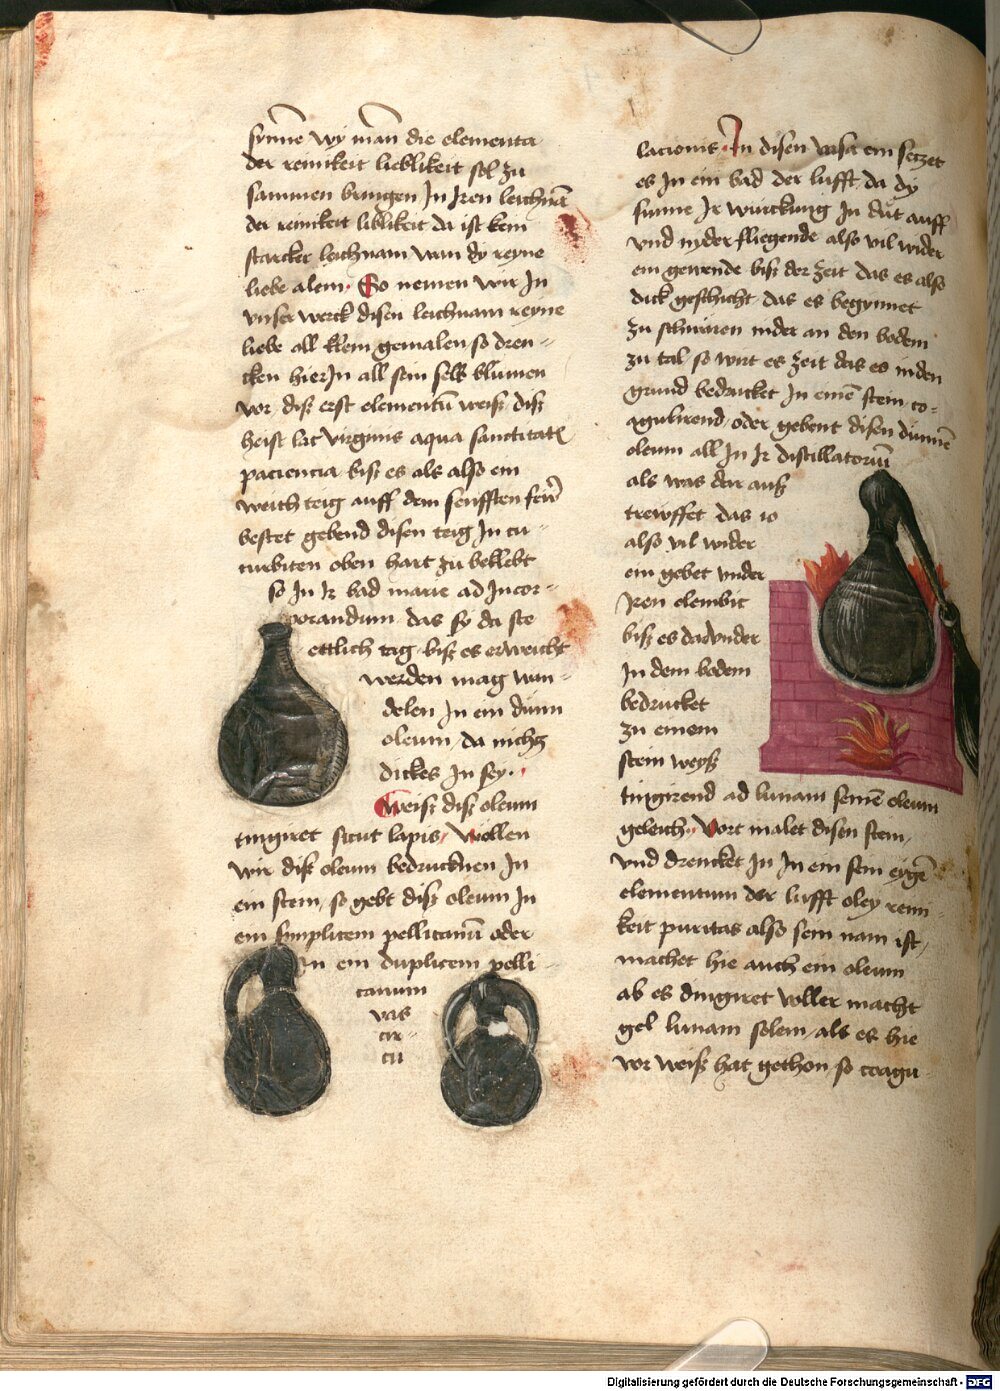 synne wy man die elementa
der reinikeit lieblikeit sol zu
sammen bringen In Iren leichnā
der reinikeit liblikeit da ist kein
starcker leichnam wan dy reyne
liebe alein. So nemen wir In
vnser werck disen leichnam reyne
liebe all klein gemalen so dren=
cken hierIn all sein selb blumen
vor diß erst elementū weiß diß
heist lac virginis aqua sanctitatis
paciencia biß es als also ein
weich teig auff dem senfften feur
bestet gebend disen teig In cu=
curbiten oben hart zu beklebt
so In Ir bad marie ad Incor=
porandum das sy da ste
ettlich tag biß es erweicht
werden mag wan=
delen In ein dunn
oleum da nichß
dickes In sey.
Weiß diß oleum
tingiret sicut lapis, Wollen
wir diß oleum bedrucknen In
ein stein, so gebt diß oleum In
ein simplicem pellicanū oder
In ein duplicem pelli=
canum
vas
cir=
cu
lacionis. In disen vasa ein setzet
es In ein bad der lufft da dy
sunne Ir würckung In dut auff
vnd nyder fliegende also vil wider
ein gewende biß der zeit das es also
dick geschicht das es begynnet
zu schwaren nider an den bodem
zu tal so wirt es zeit das es in den
grund bedrucket In einē stein co=
agulirend, oder gebent disen dünnē
oleum all In Ir distillatoriū
als was dar auß
trewffet das io
also vil wider
ein gebet vnder
Iren elembic
biß es darvnder
In dem bodem
bedrucket
zu einem
stein weyß
tingirend ad lunam seinē oleum
geleich. Vort malet disen stein,
vnd drencket In In ein sein eygē
elementum der lufft oley reini
keit puritas also sein nam ist,
machet hie auch ein oleum
ab es dingiret voller macht
gel lunam solem, als es hie
vor weiß hat gethon so coagu
Digitalisierung gefördert durch die Deutsche Forschungsgemeinschaft - DFG